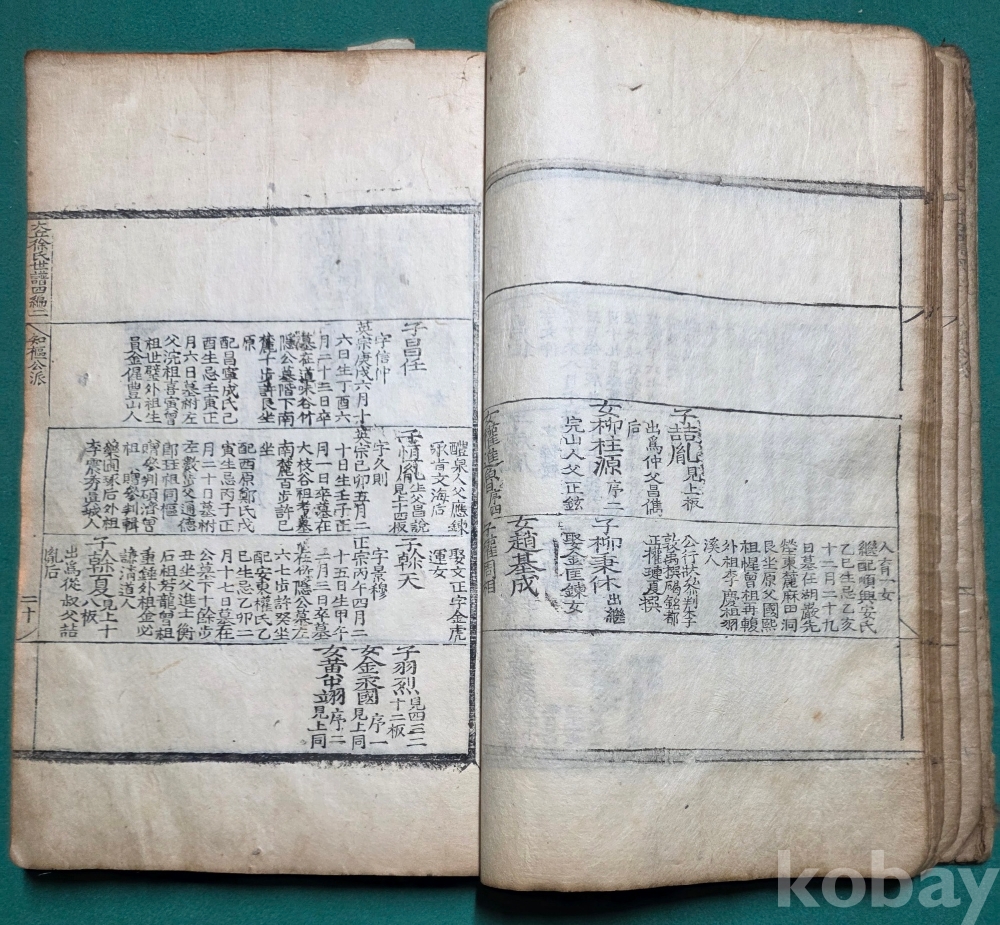 子喆胤見上板
出爲仲父昌儁
后
女柳柱源序二
完山人父正鉉
人育一女
繼配順興安氏
乙巳生忌乙亥
十二月二十九
日墓在湖巖先
塋東麓麻田洞
艮坐原父國熙
祖楃曾祖再轅
外祖李慶祖羽
溪人
公行狀參判李
敦禹撰碣銘都
正權璉夏撰
子柳秉休出繼
娶金匡鍊女
女趙基成
大丘徐氏世譜四編二
知樞公派
二十
子昌任
字信仲
英宗庚戌六月十
六日生丁酉六
月二十三日卒
墓在道味谷竹
隱公墓階下南
麓千步許艮坐
原
配昌寧成氏己
酉生忌壬寅正
月六日墓祔左
父浣祖喜寅曾
祖世璧外祖生
員金偓豊山人
醴泉人父應鍊
家音文海后
子愼胤生父昌說
見上十四板
字久則
英宗己卯五月二
十日生壬子正
月一日卒墓在
大枝谷祖考墓
南麓百步許巳
坐
配西原鄭氏戊
寅生忌丙子正
月二十日墓祔
左
祖
贈參判
藥圃琢后外祖
李震秀眞城人
娶文正字金虎
運女
子榦天
字景穆
正宗丙午四月二
十五月生甲午
二月三日卒墓
六七步許癸坐
配安東權氏乙
巳生忌乙卯二
月十七日墓在
公墓下十餘步
丑坐父進士衡
石祖芳龍曾祖
重鍾外祖金必
諱清道人
子榦夏見上十
八板
出爲從叔父喆
胤后
子羽烈見四二二
十二板
女金永國序一
見上同
女黃中翊序二
見上同